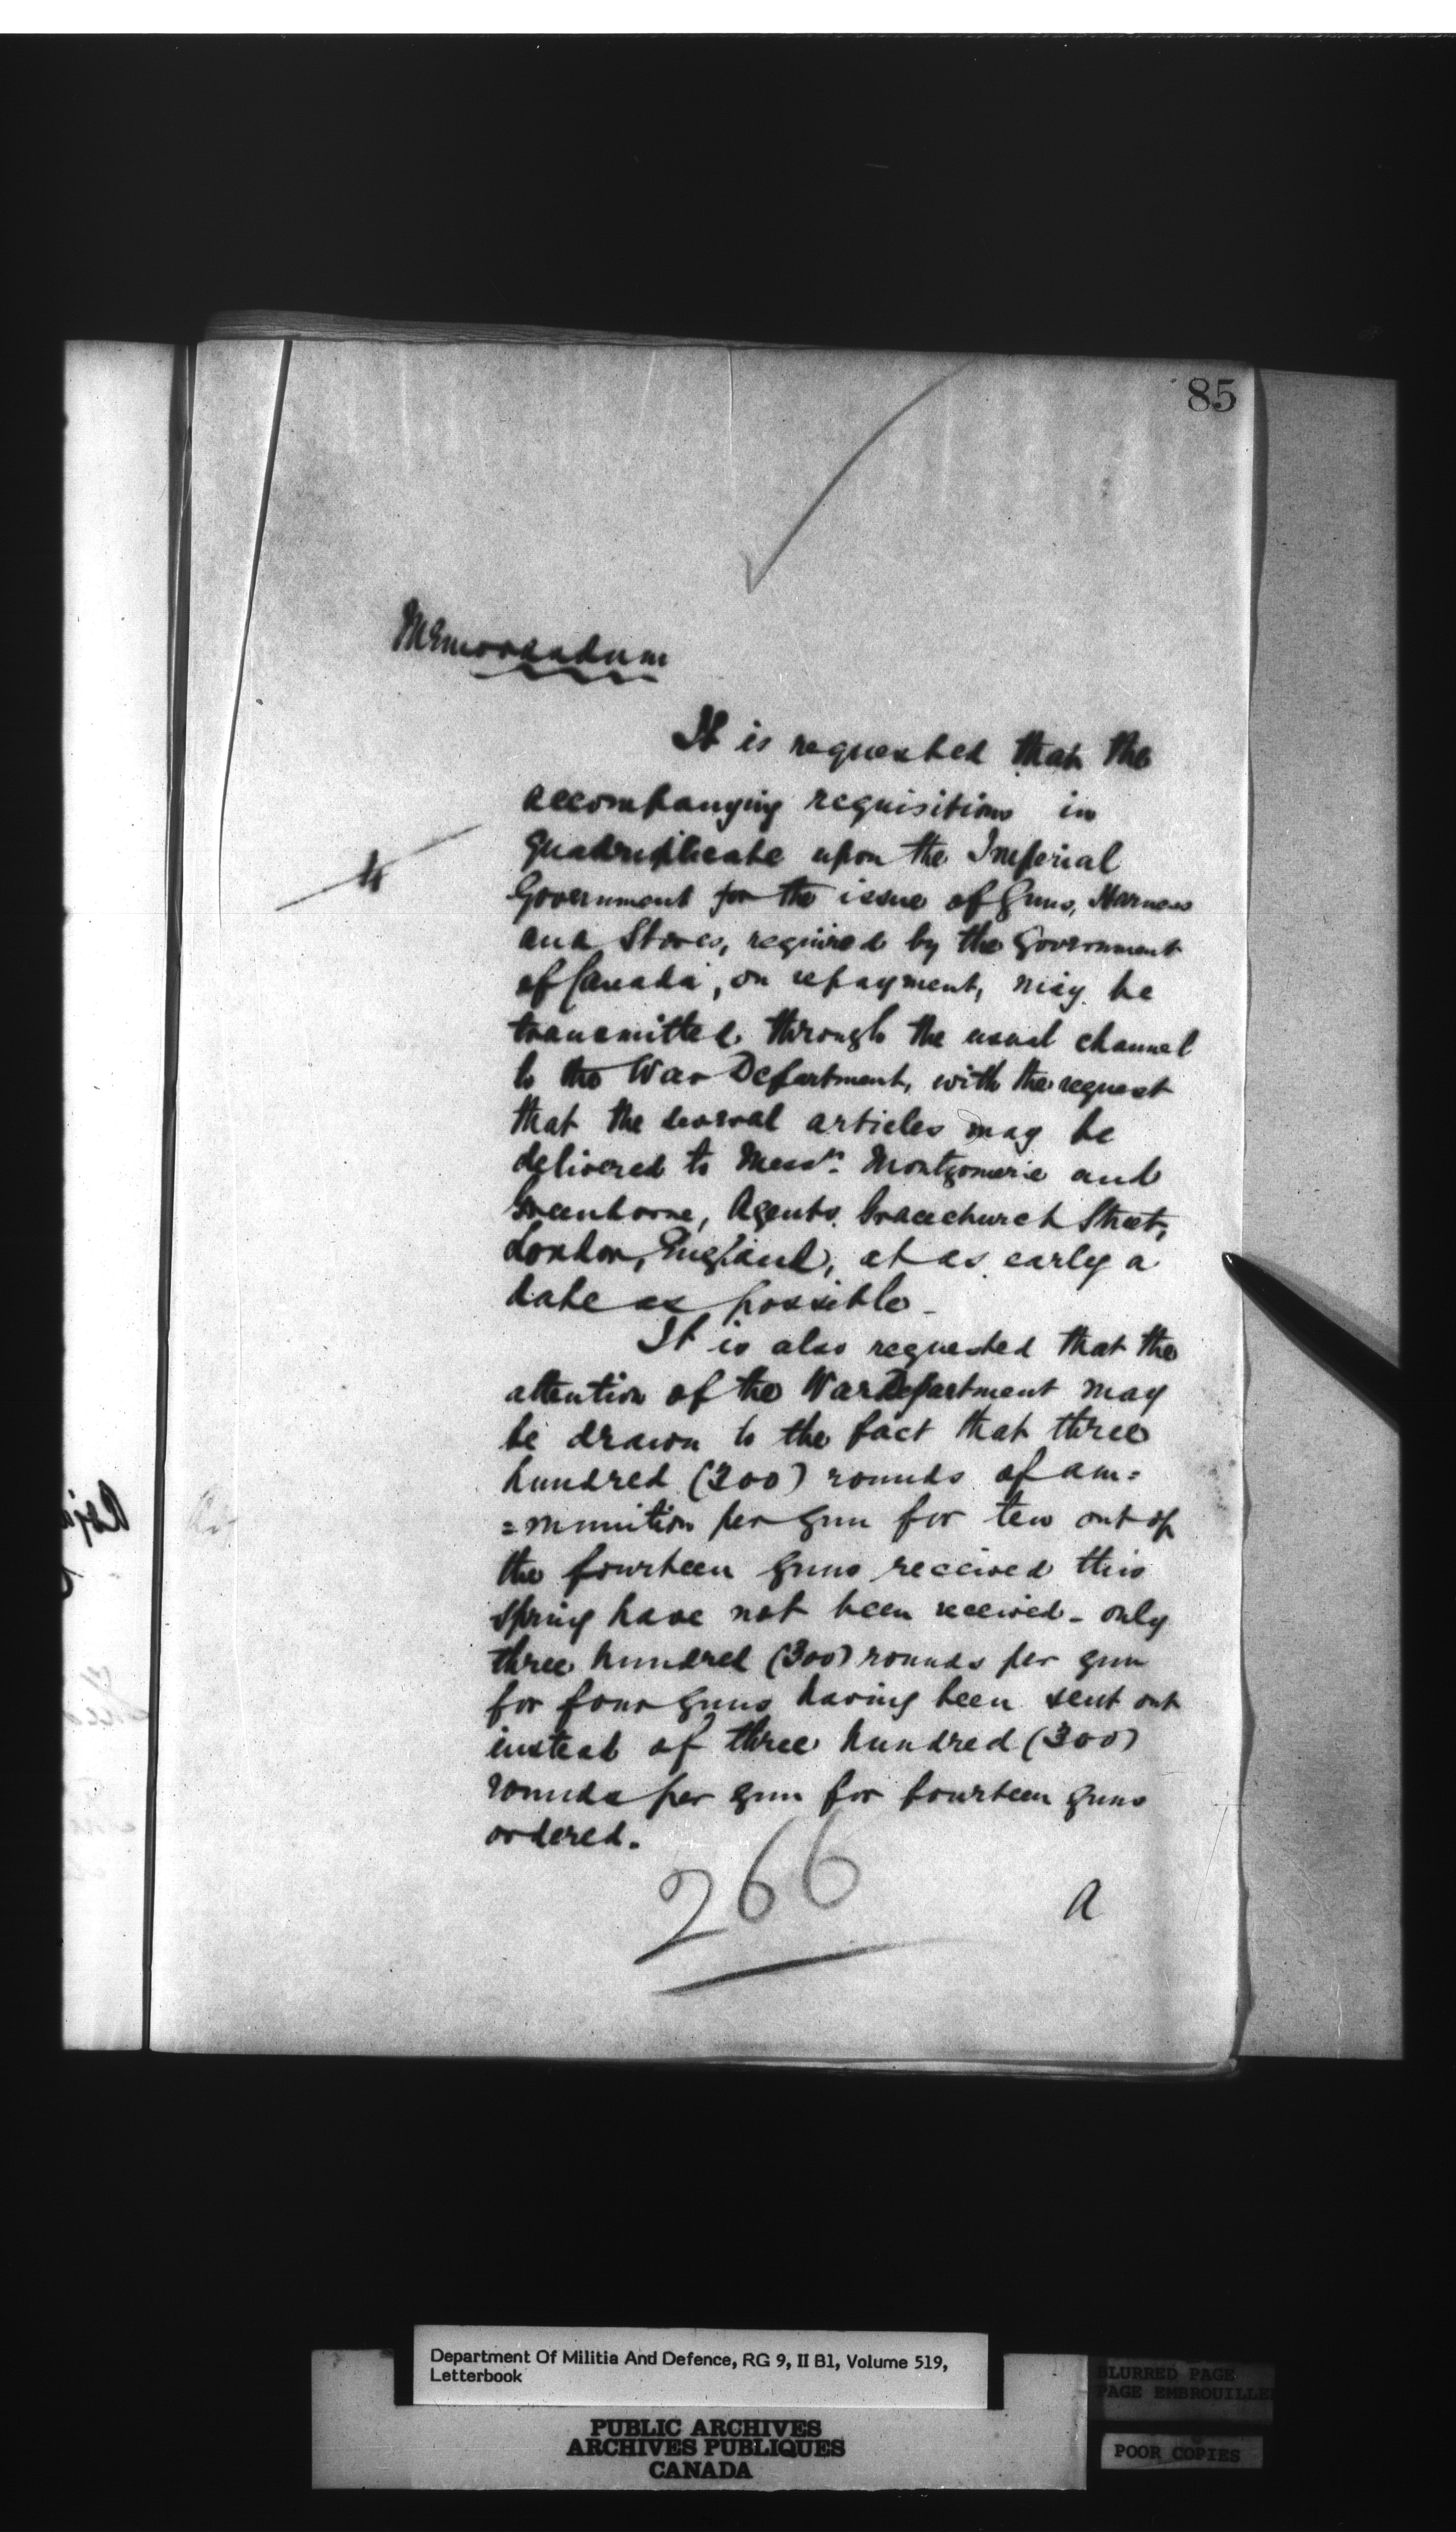 85
Memorandum
It is requested that the
accompanying requisitions in
Quadruplicate upon the Imperial
4
Government for the issue of Guns, Harness
and Stores, required by the Government
of Canada, on repayment, may be
transmitted through the usual channel
to the War Department, with the request
that the several articles may be
delivered to Messrs. Montgomerie and
Greenhorne, Agents, Gracechurch Street,
London, England, at as early a
date as possible -
It is also requested that the
attention of the War Department may
be drawn to the fact that three
hundred (300) rounds of am=
=munition per gun for ten out of
the fourteen guns received this
spring have not been received - only
three hundred (300) rounds per gun
for four guns having been sent out
instead of three hundred (300)
rounds per gun for fourteen guns
ordered.
266
a
Department Of Militia And Defence, RG 9, II B1, Volume 519,
Letterbook
PUBLIC ARCHIVES
ARCHIVES PUBLIQUES
CANADA
BLURRED PAGE
PAGE EMBROUILLE
POOR COPIES